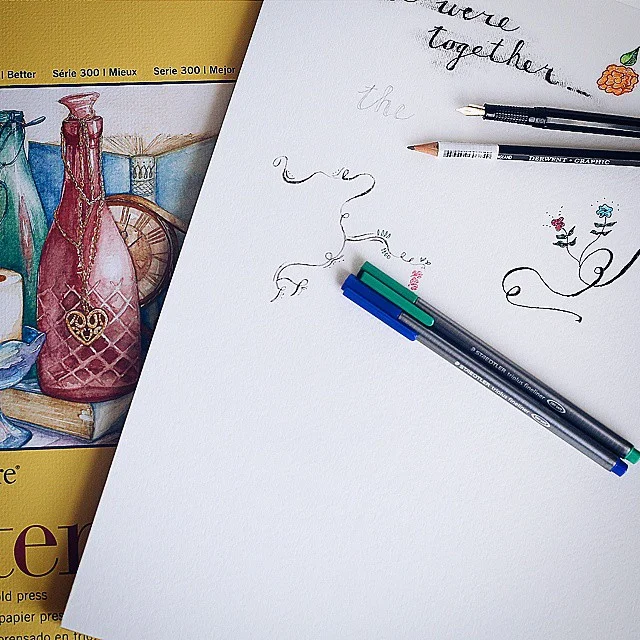 | Better Série 300 | Mieux Serie 300 | Mejor
were
together...
the
DERWENT • GRAPHIC
STAEDTLER triplus fineliner
STAEDTLER triplus fineliner
re®
ter
old press
papier pres
prensado en frío